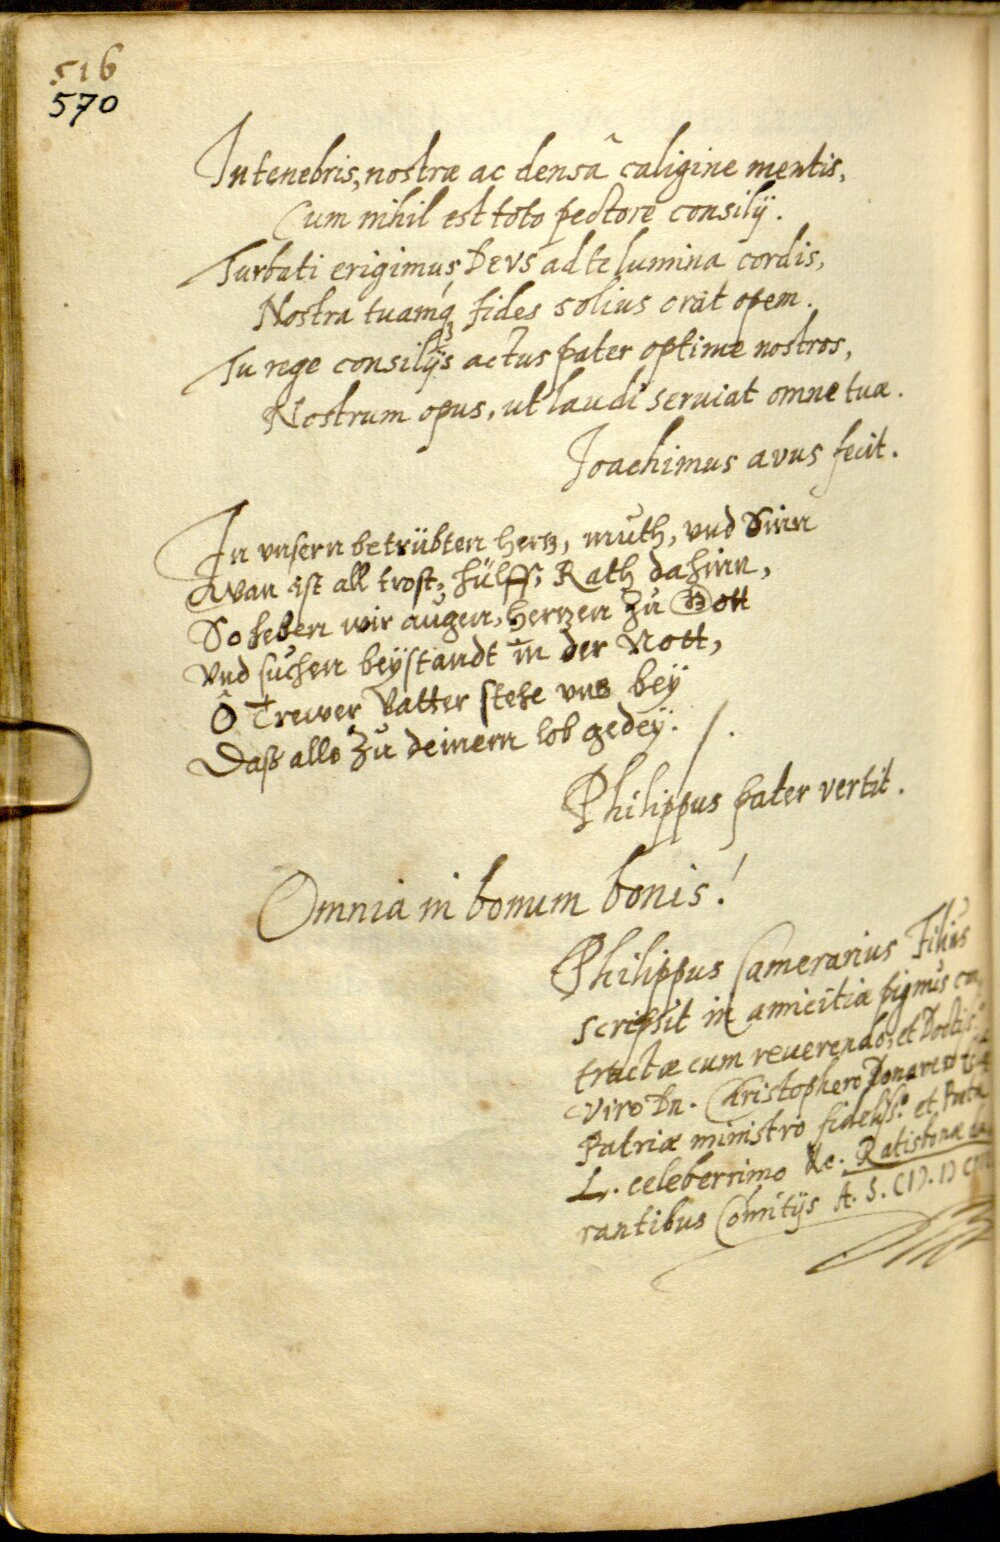 516
570
In tenebris, nostræ ac densâ caligine mentis,
Cum nihil est toto pectore consilij.
Turbati erigimus, Devs ad te lumina cordis,
Nostra tuamq́₃ fides solius orat opem.
Tu rege consilijs actus pater optime nostros,
Nostrum opus, ut laudi seruiat omne tuæ.
Joachimus avus fecit.
In vnsern betrübten hertz, muth, vnd Sinn
Wan ist all trost, hülff, Rath dahinn,
So heben wir augen, hertzen zu Gott
Vnd suchen beÿstandt in der Nott,
Ô Trewer Vatter stehe vns beÿ
Daß alls zu deinem lob gedeÿ.
Philippus pater vertit.
Omnia in bonum bonis!
Philippus Camerarius Filius
scripsit in amicitiæ pignus
tractæ cum reuerendo, et
Viro Dn. Christophero Donavero
Patriæ ministro fideliss.o et
L. celeberrimo &c. Ratisbonæ
rantibus Comitijs A. S. CIↃ. IↃ